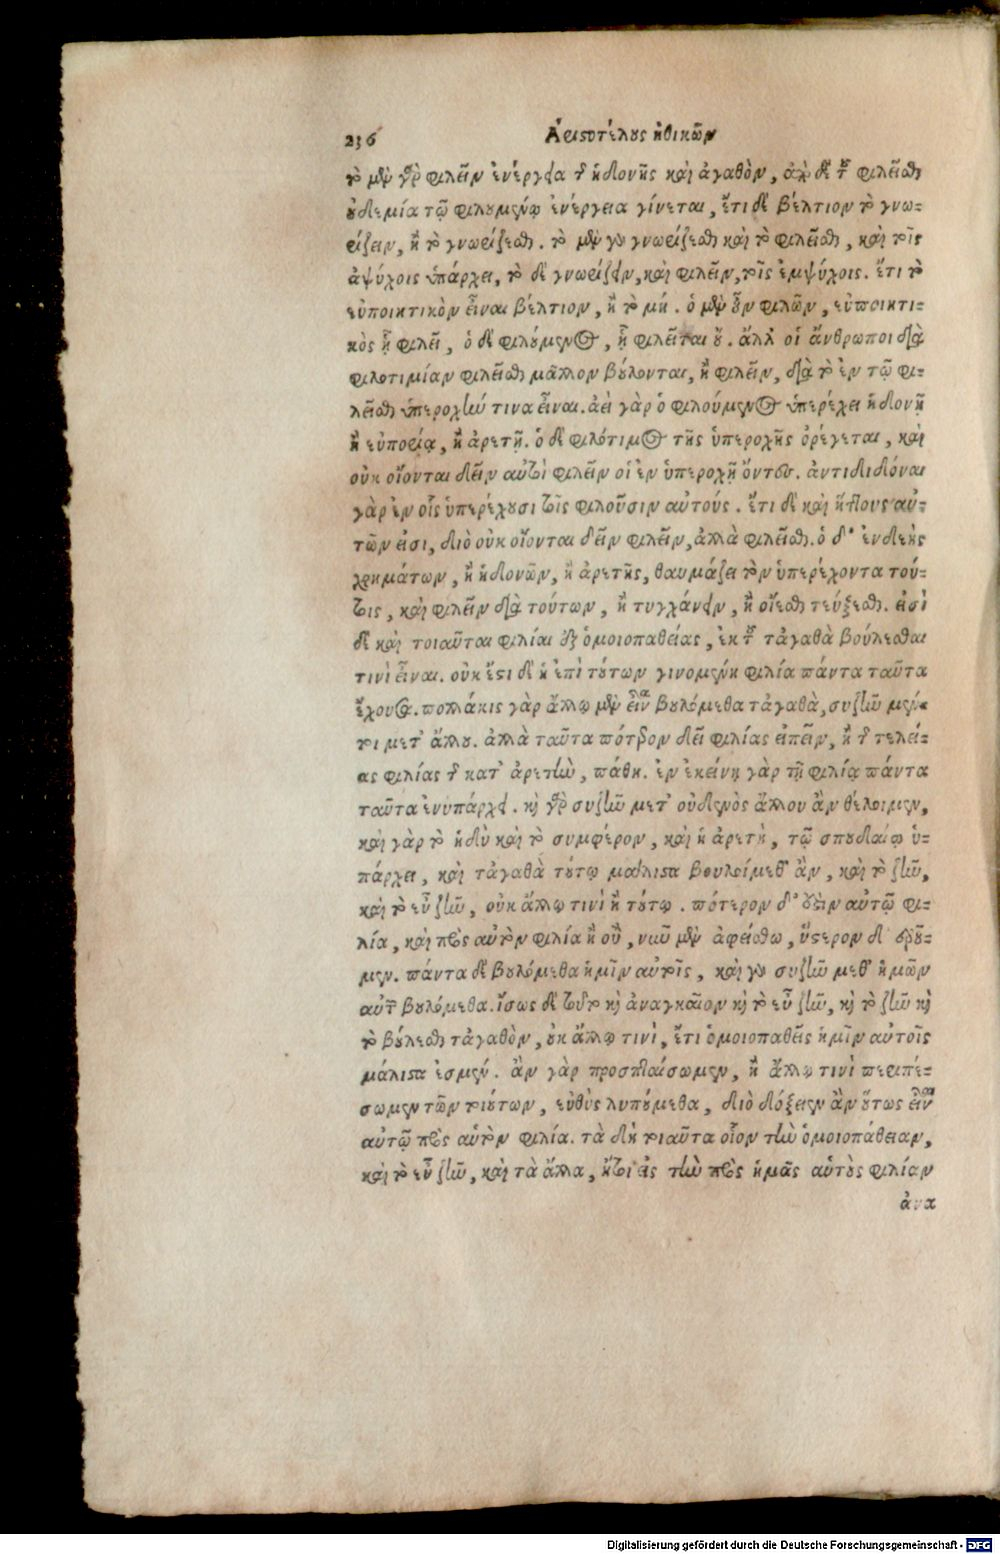 236 Ἀριστοτέλους ἠθικῶν
τὸ μὲν γὰρ φιλεῖν ἐνέργεια τῆς ἡδονῆς καὶ ἀγαθὸν, ἀπὸ δὲ τοῦ φιλεῖσθαι
οὐδεμία τῷ φιλουμένῳ ἐνέργεια γίνεται, ἔτι δὲ βέλτιον τὸ γνω-
ρίζειν, ἢ τὸ γνωρίζεσθαι. τὸ μὲν γὰρ γνωρίζεσθαι καὶ τὸ φιλεῖσθαι, καὶ τοῖς
ἀψύχοις ὑπάρχει, τὸ δὲ γνωρίζειν, καὶ φιλεῖν, τοῖς ἐμψύχοις. ἔτι τὸ
εὐποιητικὸν εἶναι βέλτιον, ἢ τὸ μή. ὁ μὲν οὖν φιλῶν, εὐποιητι-
κὸς ᾗ φιλεῖ, ὁ δὲ φιλούμενος, ᾗ φιλεῖται οὔ. ἀλλ' οἱ ἄνθρωποι διὰ
φιλοτιμίαν φιλεῖσθαι μᾶλλον βούλονται, ἢ φιλεῖν, διὰ τὸ ἐν τῷ φι-
λεῖσθαι ὑπεροχήν τινα εἶναι. ἀεὶ γὰρ ὁ φιλούμενος ὑπερέχει ἡδονῇ
ἢ εὐπορίᾳ, ἢ ἀρετῇ. ὁ δὲ φιλότιμος τῆς ὑπεροχῆς ὀρέγεται, καὶ
οὐκ οἴονται δεῖν αὐτοὶ φιλεῖν οἱ ἐν ὑπεροχῇ ὄντες. ἀντιδιδόναι
γὰρ ἐν οἷς ὑπερέχουσι τοῖς φιλοῦσιν αὐτούς. ἔτι δὲ καὶ ἥττους αὐ-
τῶν εἰσι, διὸ οὐκ οἴονται δεῖν φιλεῖν, ἀλλὰ φιλεῖσθαι. ὁ δ' ἐνδεὴς
χρημάτων, ἢ ἡδονῶν, ἢ ἀρετῆς, θαυμάζει τὸν ὑπερέχοντα τού-
τοις, καὶ φιλεῖν διὰ τούτων, ἢ τυγχάνειν, ἢ οἴεσθαι τεύξεσθαι. εἰσὶ
δὲ καὶ τοιαῦται φιλίαι ἐξ ὁμοιοπαθείας, ἐκ τοῦ τἀγαθὰ βούλεσθαι
τινὶ εἶναι. οὐκ ἔστι δὲ ἡ ἐπὶ τούτων γινομένη φιλία πάντα ταῦτα
ἔχουσα. πολλάκις γὰρ ἄλλῳ μὲν εἶναι βουλόμεθα τἀγαθὰ, συζῆν μέν-
τοι μετ' ἄλλου. ἀλλὰ ταῦτα πότερον δεῖ φιλίας εἰπεῖν, ἢ τῆς τελεί-
ας φιλίας τῆς κατ' ἀρετὴν, πάθη. ἐν ἐκείνῃ γὰρ τῇ φιλίᾳ πάντα
ταῦτα ἐνυπάρχει. καὶ γὰρ συζῆν μετ' οὐδενὸς ἄλλου ἂν θέλοιμεν,
καὶ γὰρ τὸ ἡδὺ καὶ τὸ συμφέρον, καὶ ἡ ἀρετὴ, τῷ σπουδαίῳ ὑ-
πάρχει, καὶ τἀγαθὰ τούτῳ μάλιστα βουλοίμεθ' ἂν, καὶ τὸ ζῆν,
καὶ τὸ εὖ ζῆν, οὐκ ἄλλῳ τινὶ ἢ τούτῳ. πότερον δ' ἐστὶν αὐτῷ φι-
λία, καὶ πρὸς αὐτὸν φιλία ἢ οὔ, νῦν μὲν ἀφείσθω, ὕστερον δὲ ἐροῦ-
μεν. πάντα δὲ βουλόμεθα ἡμῖν αὐτοῖς, καὶ γὰρ συζῆν μεθ' ἡμῶν
αὐτῶν βουλόμεθα. ἴσως δὲ τοῦτο καὶ ἀναγκαῖον καὶ τὸ εὖ ζῆν, καὶ τὸ ζῆν καὶ
τὸ βούλεσθαι τἀγαθὸν, οὐκ ἄλλῳ τινὶ, ἔτι ὁμοιοπαθεῖς ἡμῖν αὐτοῖς
μάλιστα ἐσμέν. ἂν γὰρ προσπταίσωμεν, ἢ ἄλλῳ τινὶ περιπέ-
σωμεν τῶν τοιούτων, εὐθὺς λυπούμεθα, διὸ δόξειεν ἂν οὕτως εἶναι
αὐτῷ πρὸς αὑτὸν φιλία. τὰ δὴ τοιαῦτα οἷον τὴν ὁμοιοπάθειαν,
καὶ τὸ εὖ ζῆν, καὶ τὰ ἄλλα, ἤτοι εἰς τὴν πρὸς ἡμᾶς αὑτοὺς φιλίαν
ἀνα
Digitalisierung gefördert durch die Deutsche Forschungsgemeinschaft - DFG